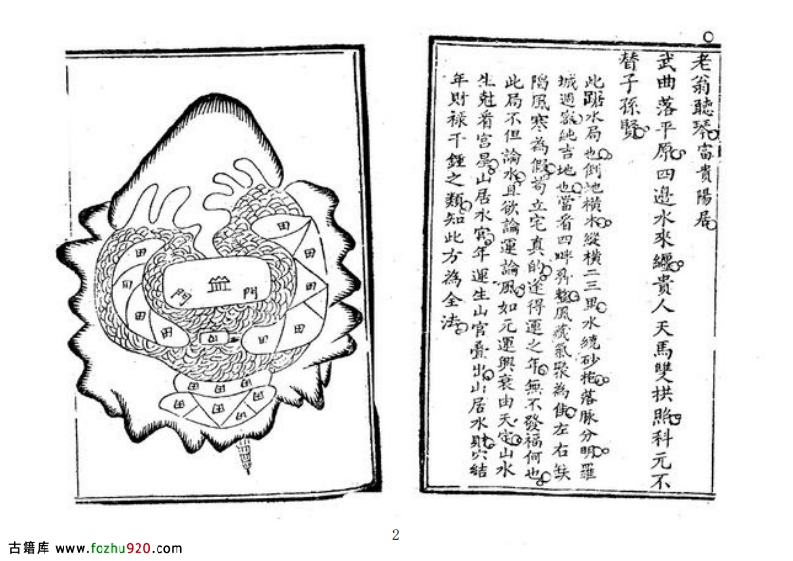 老翁聽琴富貴陽居
武曲落平原四邉水來纏貴人天馬雙拱照科元不
替子孫賢
此踞水局也倒地橫木縱橫二三里水繞砂拖落脉分明羅
城週密純吉地也當看四畔齊整風藏氣聚為佳左右缺
陷風寒為假苟立宅真的逢得運之年無不發福何也
此局不但論水且欲論運論風如元運興衰由天定山水
生尅看宮量山居水宮年運生山官疊出山居水財穴結
年財祿千鍾之類知此方為全法
田
田
田
田
田
田
田
田
門
門
2
古籍库 www.fozhu920.com